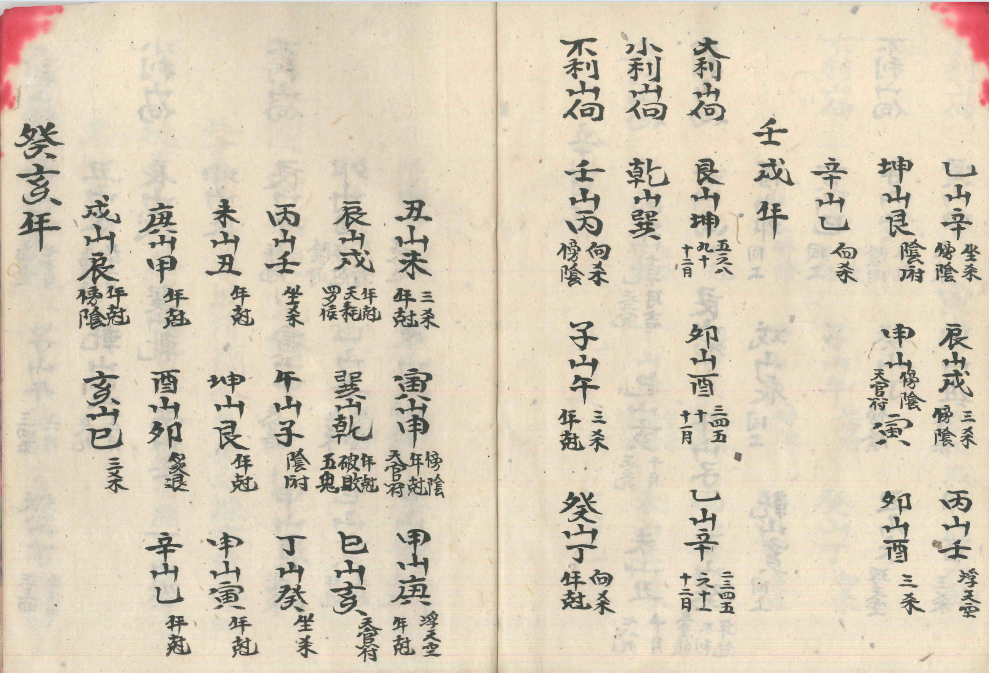 乙山辛 坐杀 傍陰 辰山戌 三杀 傍陰 丙山壬 浮天空
坤山艮 陰府 申山寅 傍陰 天官府 卯山酉 三杀
辛山乙 向杀
壬戌年
大利山向 艮山坤 五六八 九十 十二月 卯山酉 三四五 十 十一月 乙山辛 二三四五 六十一 十二月
小利山向 乾山巽
不利山向 壬山丙 向杀 傍陰 子山午 三杀 年尅 癸山丁 向杀 年尅
丑山未 三杀 年尅 寅山申 傍陰 年尅 天官府 甲山庚 浮天空 年尅
辰山戌 年尅 天耗 罗睺 巽山乾 年尅 破败 五鬼 巳山亥 天官府
丙山壬 坐杀 午山子 陰府 丁山癸 坐杀
未山丑 年尅 坤山艮 年尅 申山寅 年尅
庚山甲 年尅 酉山卯 退 辛山乙 年尅
戌山辰 年尅 傍陰 亥山巳 三杀
癸亥年